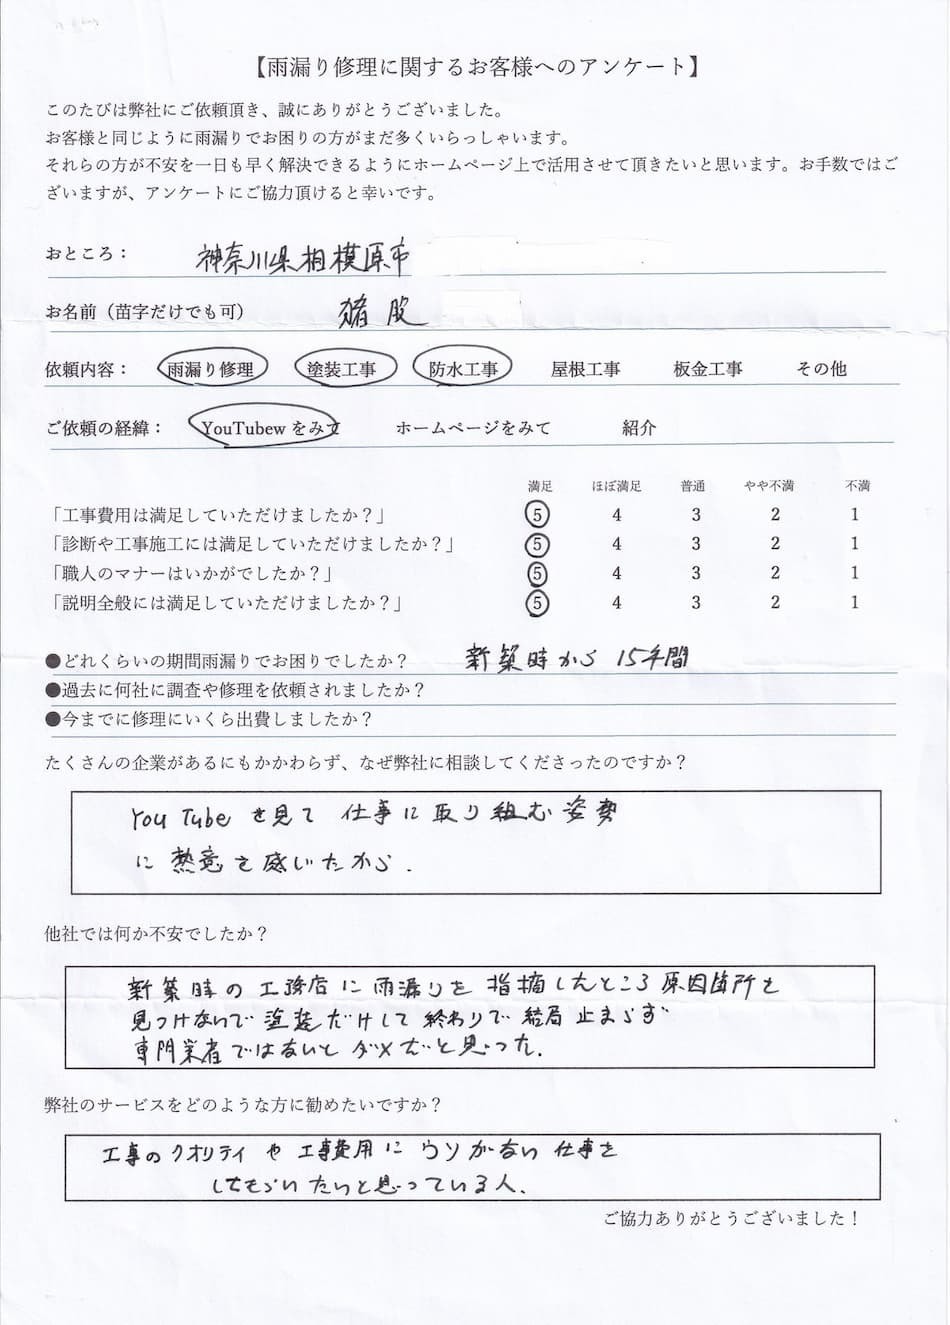 【雨漏り修理に関するお客様へのアンケート】
このたびは弊社にご依頼頂き、誠にありがとうございました。
お客様と同じように雨漏りでお困りの方がまだ多くいらっしゃいます。
それらの方が不安を一日も早く解決できるようにホームページ上で活用させて頂きたいと思います。お手数ではご
ざいますが、アンケートにご協力頂けると幸いです。
おところ： 神奈川県相模原市
お名前（苗字だけでも可） 猪股
依頼内容： 雨漏り修理 塗装工事 防水工事 屋根工事 板金工事 その他
ご依頼の経緯： YouTubewをみて ホームページをみて 紹介
満足 ほぼ満足 普通 やや不満 不満
「工事費用は満足していただけましたか？」 5 4 3 2 1
「診断や工事施工には満足していただけましたか？」 5 4 3 2 1
「職人のマナーはいかがでしたか？」 5 4 3 2 1
「説明全般には満足していただけましたか？」 5 4 3 2 1
●どれくらいの期間雨漏りでお困りでしたか？ 新築時から 15年間
●過去に何社に調査や修理を依頼されましたか？
●今までに修理にいくら出費しましたか？
たくさんの企業があるにもかかわらず、なぜ弊社に相談してくださったのですか？
YouTubeを見て 仕事に取り組む姿勢
に熱意を感じたから.
他社では何か不安でしたか？
新築時の工務店に雨漏りを指摘したところ原因箇所を
見つけないで塗装だけして終わりで結局止まらず
専門業者ではないとダメだと思った.
弊社のサービスをどのような方に勧めたいですか？
工事のクオリティや工事費用にウソがない仕事を
してもらいたいと思っている人.
ご協力ありがとうございました！